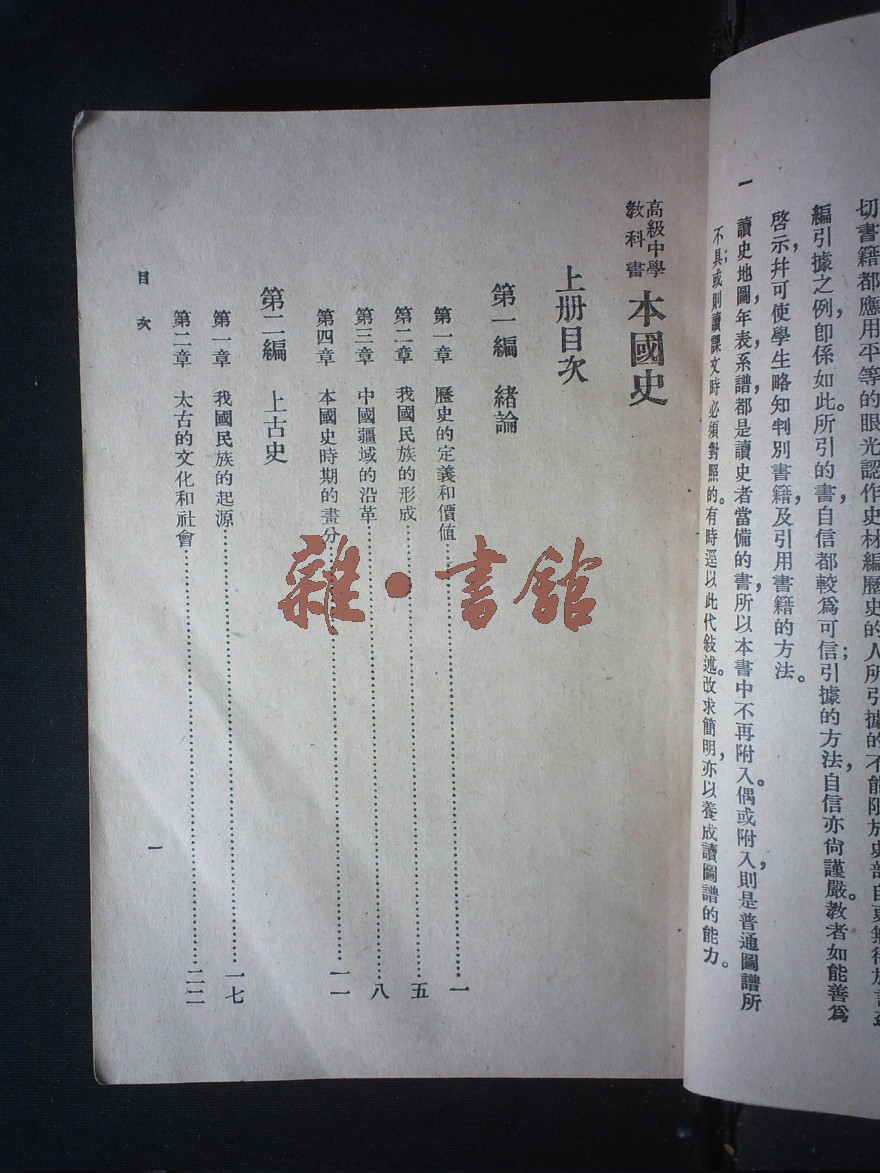 切書籍都應用平等的眼光認作史材編歷史的人所引據的不能限於史部自更無待於言
編引據之例卽係如此。所引的書，自信都較爲可信；引據的方法，自信亦尙謹嚴。教者如能善爲
啓示，幷可使學生略知判別書籍，及引用書籍的方法。
一　讀史地圖，年表，系譜，都是讀史者當備的書，所以本書中不再附入。偶或附入，則是普通圖譜所
不具；或則讀課文時必須對照的。有時逕以此代敍述。改求簡明，亦以養成讀圖譜的能力。
高級中學
教科書
本國史
上册目次
第一編　緒論
第一章　歷史的定義和價值……一
第二章　我國民族的形成……五
第三章　中國疆域的沿革……八
第四章　本國史時期的畫分……一一
第二編　上古史
第一章　我國民族的起源……一七
第二章　太古的文化和社會……二二
目次
一
雜·書館